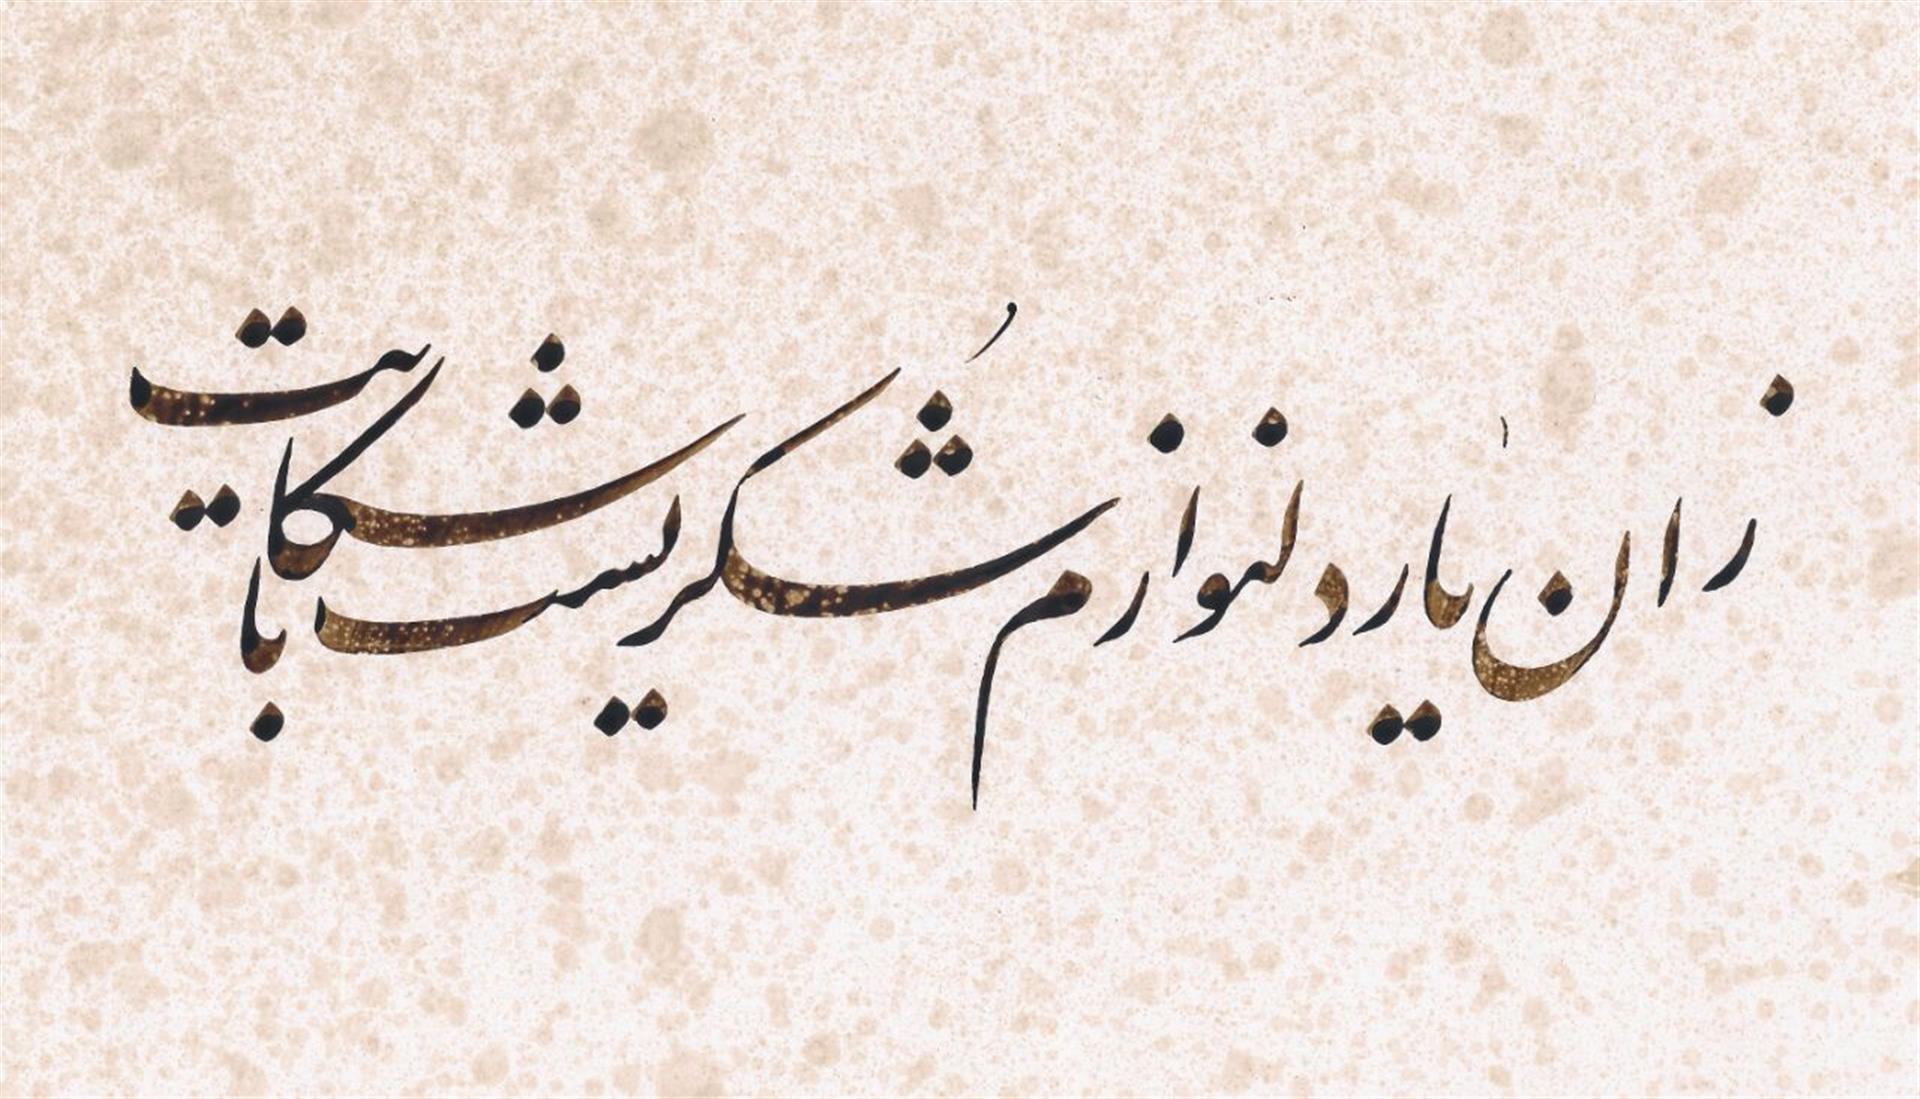 زان یار دلنوازم شُکریست با شکایت